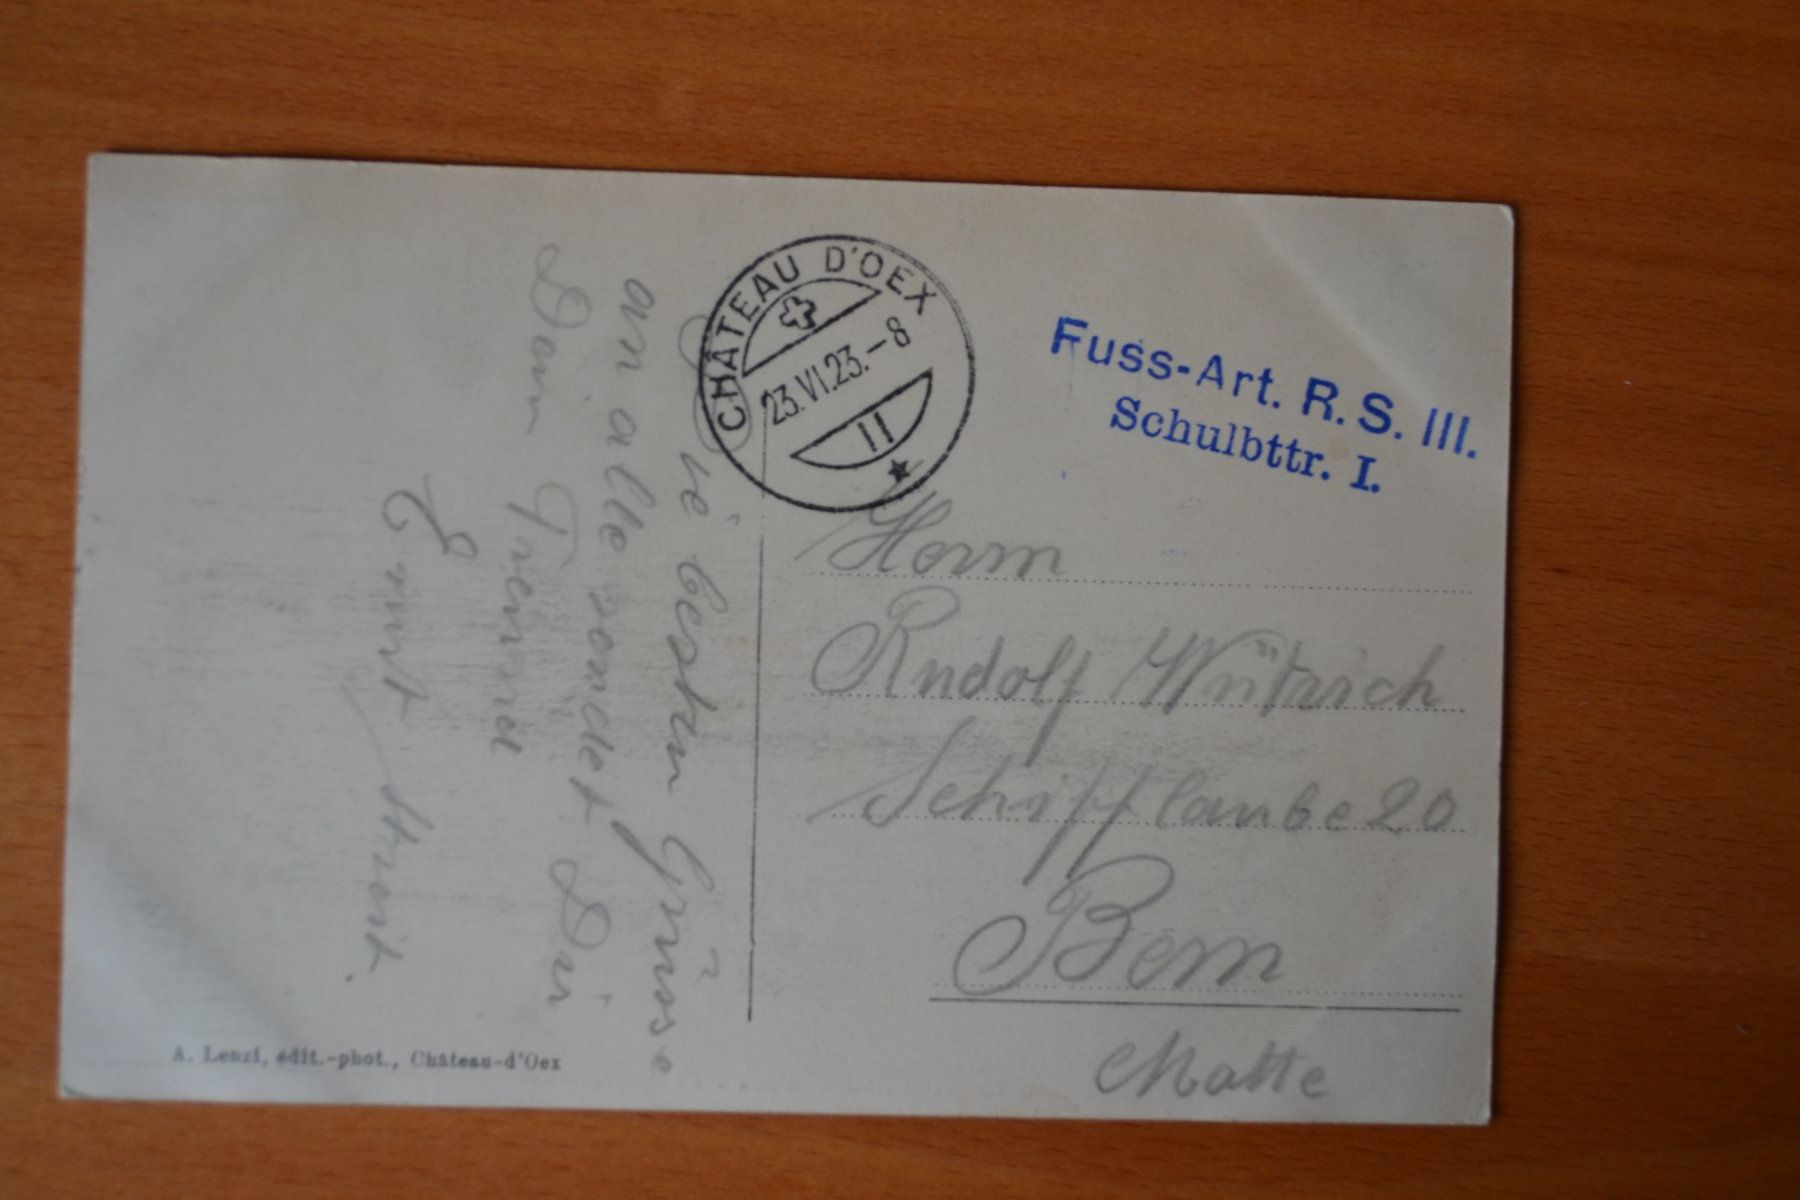 CHÂTEAU D'OEX
23.VI.23.-8
II
Fuss-Art. R.S. III.
Schulbttr. I.
Herrn
Rudolf Wütrich
Schifflaube 20
Bern
Matte
Die besten Grüsse
an alle sendet Dir
Dein Freund
Ernst
A. Lenzi, édit.-phot., Château-d'Oex